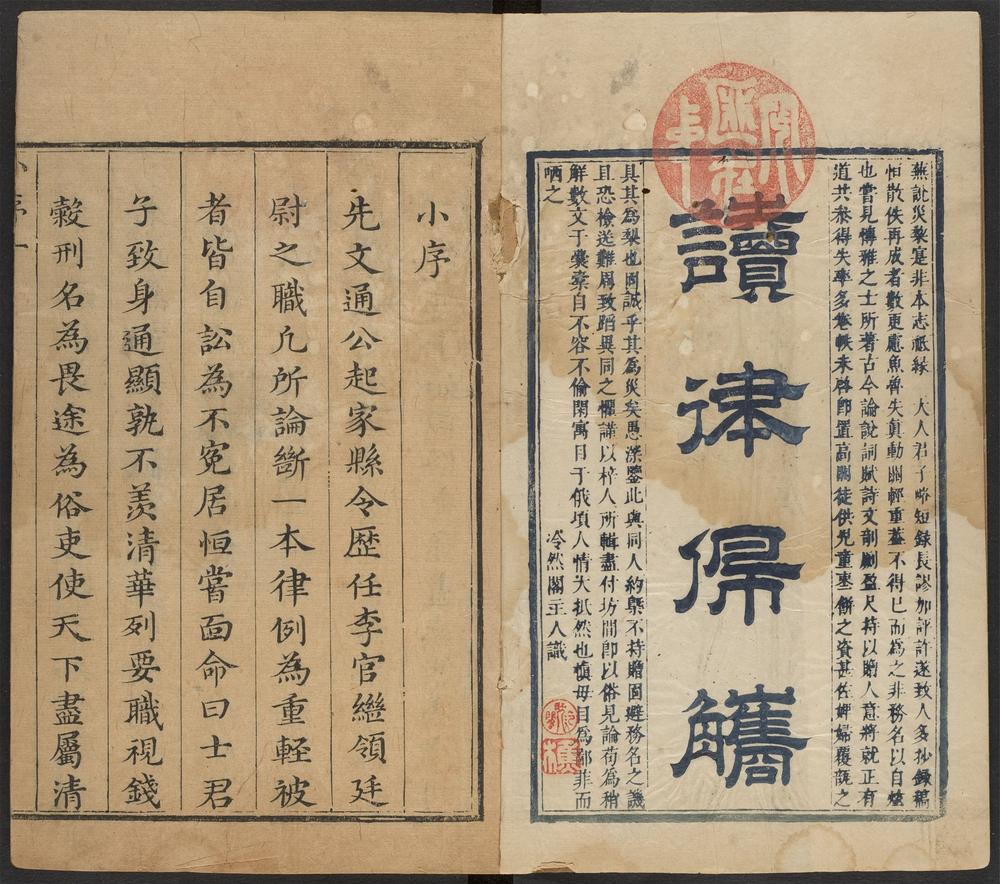 蕪說災棃寔非本志祗緣　大人君子略短録長謬加評許遂致人多抄録稿
怕散佚再成者數更慮魚魯失眞動關輕重蓋不得已而爲之非務名以自炫
也嘗見博雅之士所著古今論說詞賦詩文剞劂盈尺持以贈人意將就正有
道共叅得失率多卷帙未啓卽置高閣徒供兒童棗餅之資甚佐婢婦覆瓿之
讀律佩觿
具其爲棃也固誠乎其爲災矣愚深鑒此與同人約槩不持贈固避務名之譏
且恐檢送難周致蹈異同之懼謹以梓人所輯盡付坊間卽以俗見論苟爲稍
解數文于囊橐自不容不偷閑寓目于俄頃人情大抵然也愼毋目爲鄙菲而
哂之
冷然閣主人識
小序
先文通公起家縣令歷任李官繼領廷
尉之職凡所論斷一本律例為重輕被
者皆自訟為不冤居恒嘗面命曰士君
子致身通顯孰不羨清華列要職視錢
穀刑名為畏途為俗吏使天下盡屬清
小序 一